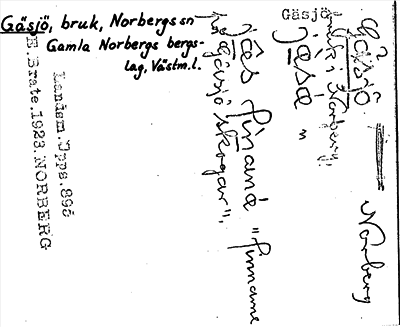 Gäsjö, bruk, Norbergs sn
Gamla Norbergs bergs-
lag, Västm.l.
Gäsjö
Gäsjö
Norberg
bruk i Norberg.
jäså
jäs finanä "finnarne
på Gäsjö skogar".
Landsm.Upps.895
E.Brate.1923.NORBERG